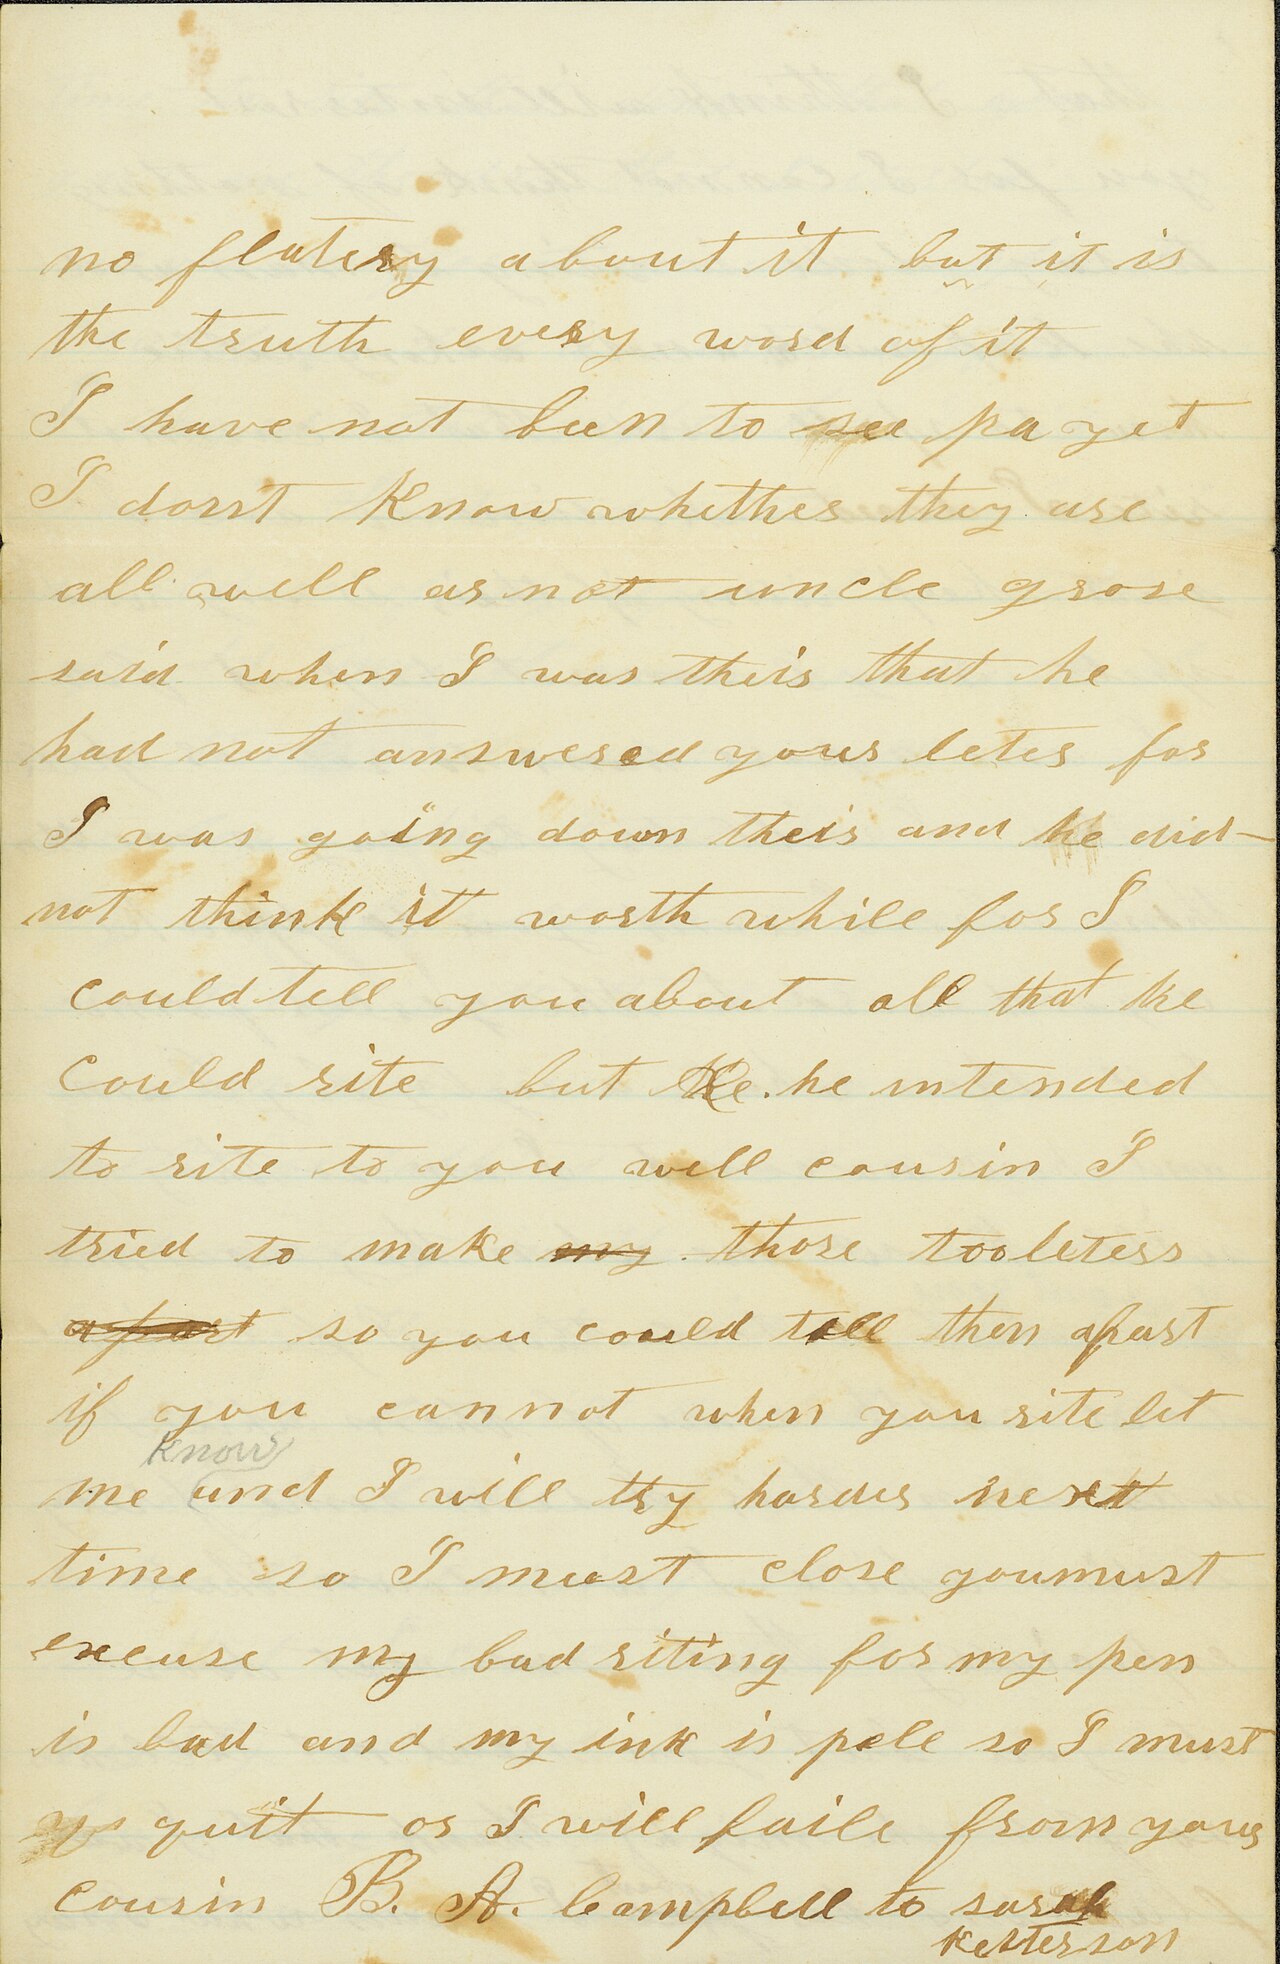 no flatery about it but it is
the truth every word of it
I have not been to see pa yet
I donnt Know whether they are
all well or not uncle grose
said when I was their that he
had not answered your leter for
I was going down their and he did
not think it worth while for I
could tell you about all that he
could rite but he he intended
to rite to you well cousin I
tried to make my those too leters
apart so you could tell then apart
if you cannot when you rite let
know
me and I will try harder next
time so I must close you must
excuse my bad riting for my pen
is bad and my ink is pale so I must
quit or I will faile from your
cousin B. A. Campbell to sarah
Ketterson